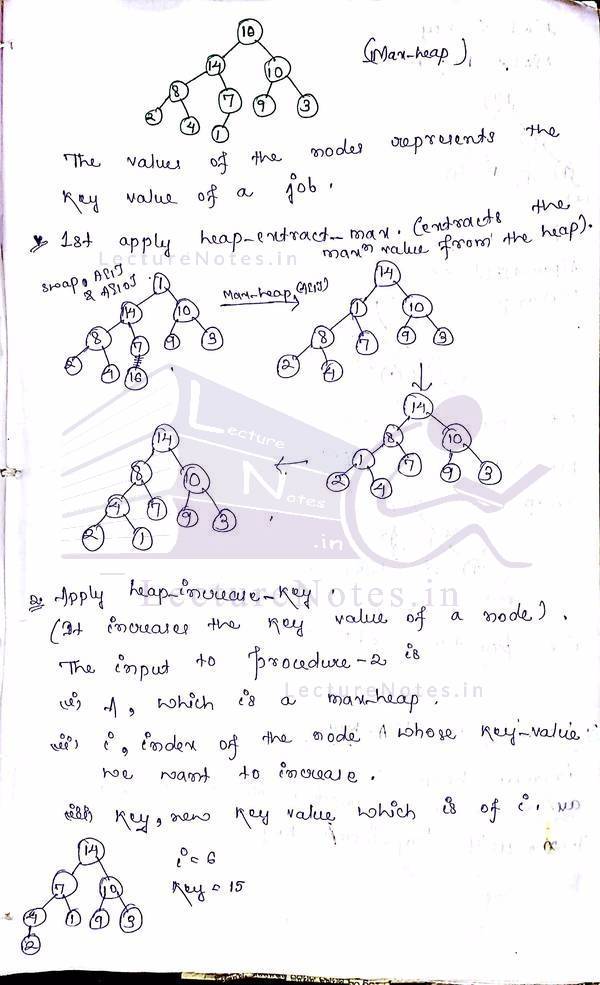 16
(Max-heap)
14
10
8
7
9
3
2
4
1
The values of the nodes represents the
key value of a job.
1st apply heap-extract-max. (extracts the
maxm value from the heap).
LectureNotes.in
swap, A[1]
& A[10]
1
14
10
8
7
9
3
2
4
16
Max-heap(A[1])
14
1
10
8
7
9
3
2
4
14
8
10
1
7
9
3
2
4
14
8
10
4
7
9
3
2
1
Lecture
Notes
.in
2. Apply heap-increase-key.
LectureNotes.in
(It increases the key value of a node).
The input to procedure-2 is
LectureNotes.in
(i) A, which is a max-heap.
(ii) i, index of the node whose key-value
we want to increase.
(iii) key, new key value which is of i.
14
i = 6
7
10
key = 15
4
1
9
3
2